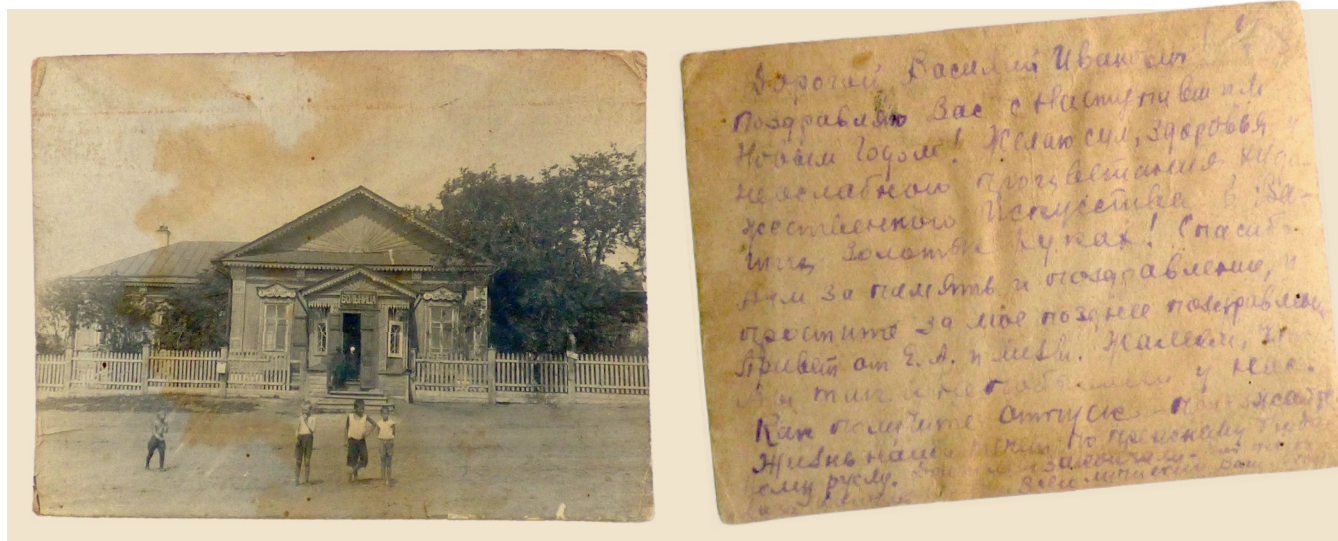 БОЛЬНИЦА
Дорогой Василий Иванович
Поздравляю Вас с Наступившим
Новым Годом! Желаю сил, здоровья и
неослабного процветания худо-
жественного Искусства в Ва-
ших золотых руках! Спасибо
Вам за память и поздравление, и
простите за мое позднее поздравление
Привет от Е. А. и Лизы. Жалеем, что
Вы так и не побывали у нас.
Как получите отпуск - приезжайте
Жизнь наша течет по прежнему
руслу.